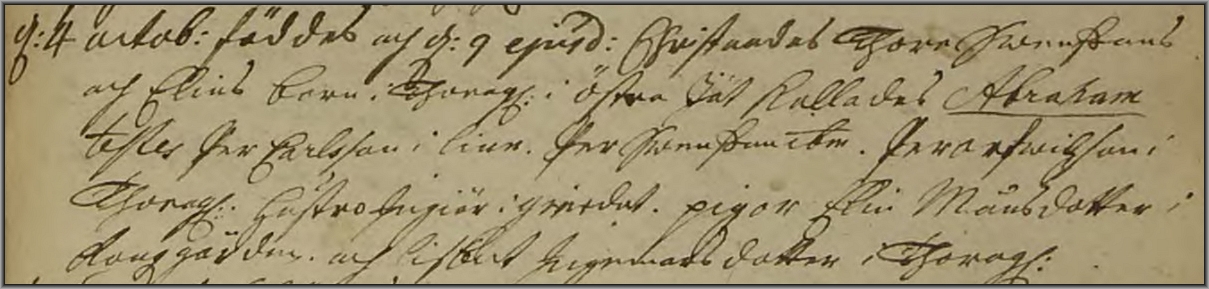 d: 4 octob: föddes och d: 9 ejusd: Christnades Thore Swenssons
och Elins barn i Thoragh: i östra Jät Kallades Abraham
testes Per Carlsson i Linn. Per Swensson ibm. Per arfwidson i
Thoragh: Hustro Ingiär i giärdet. pigor Elin Månsdotter i
gården. och Lisbet Ingemarsdotter i Thoragh: